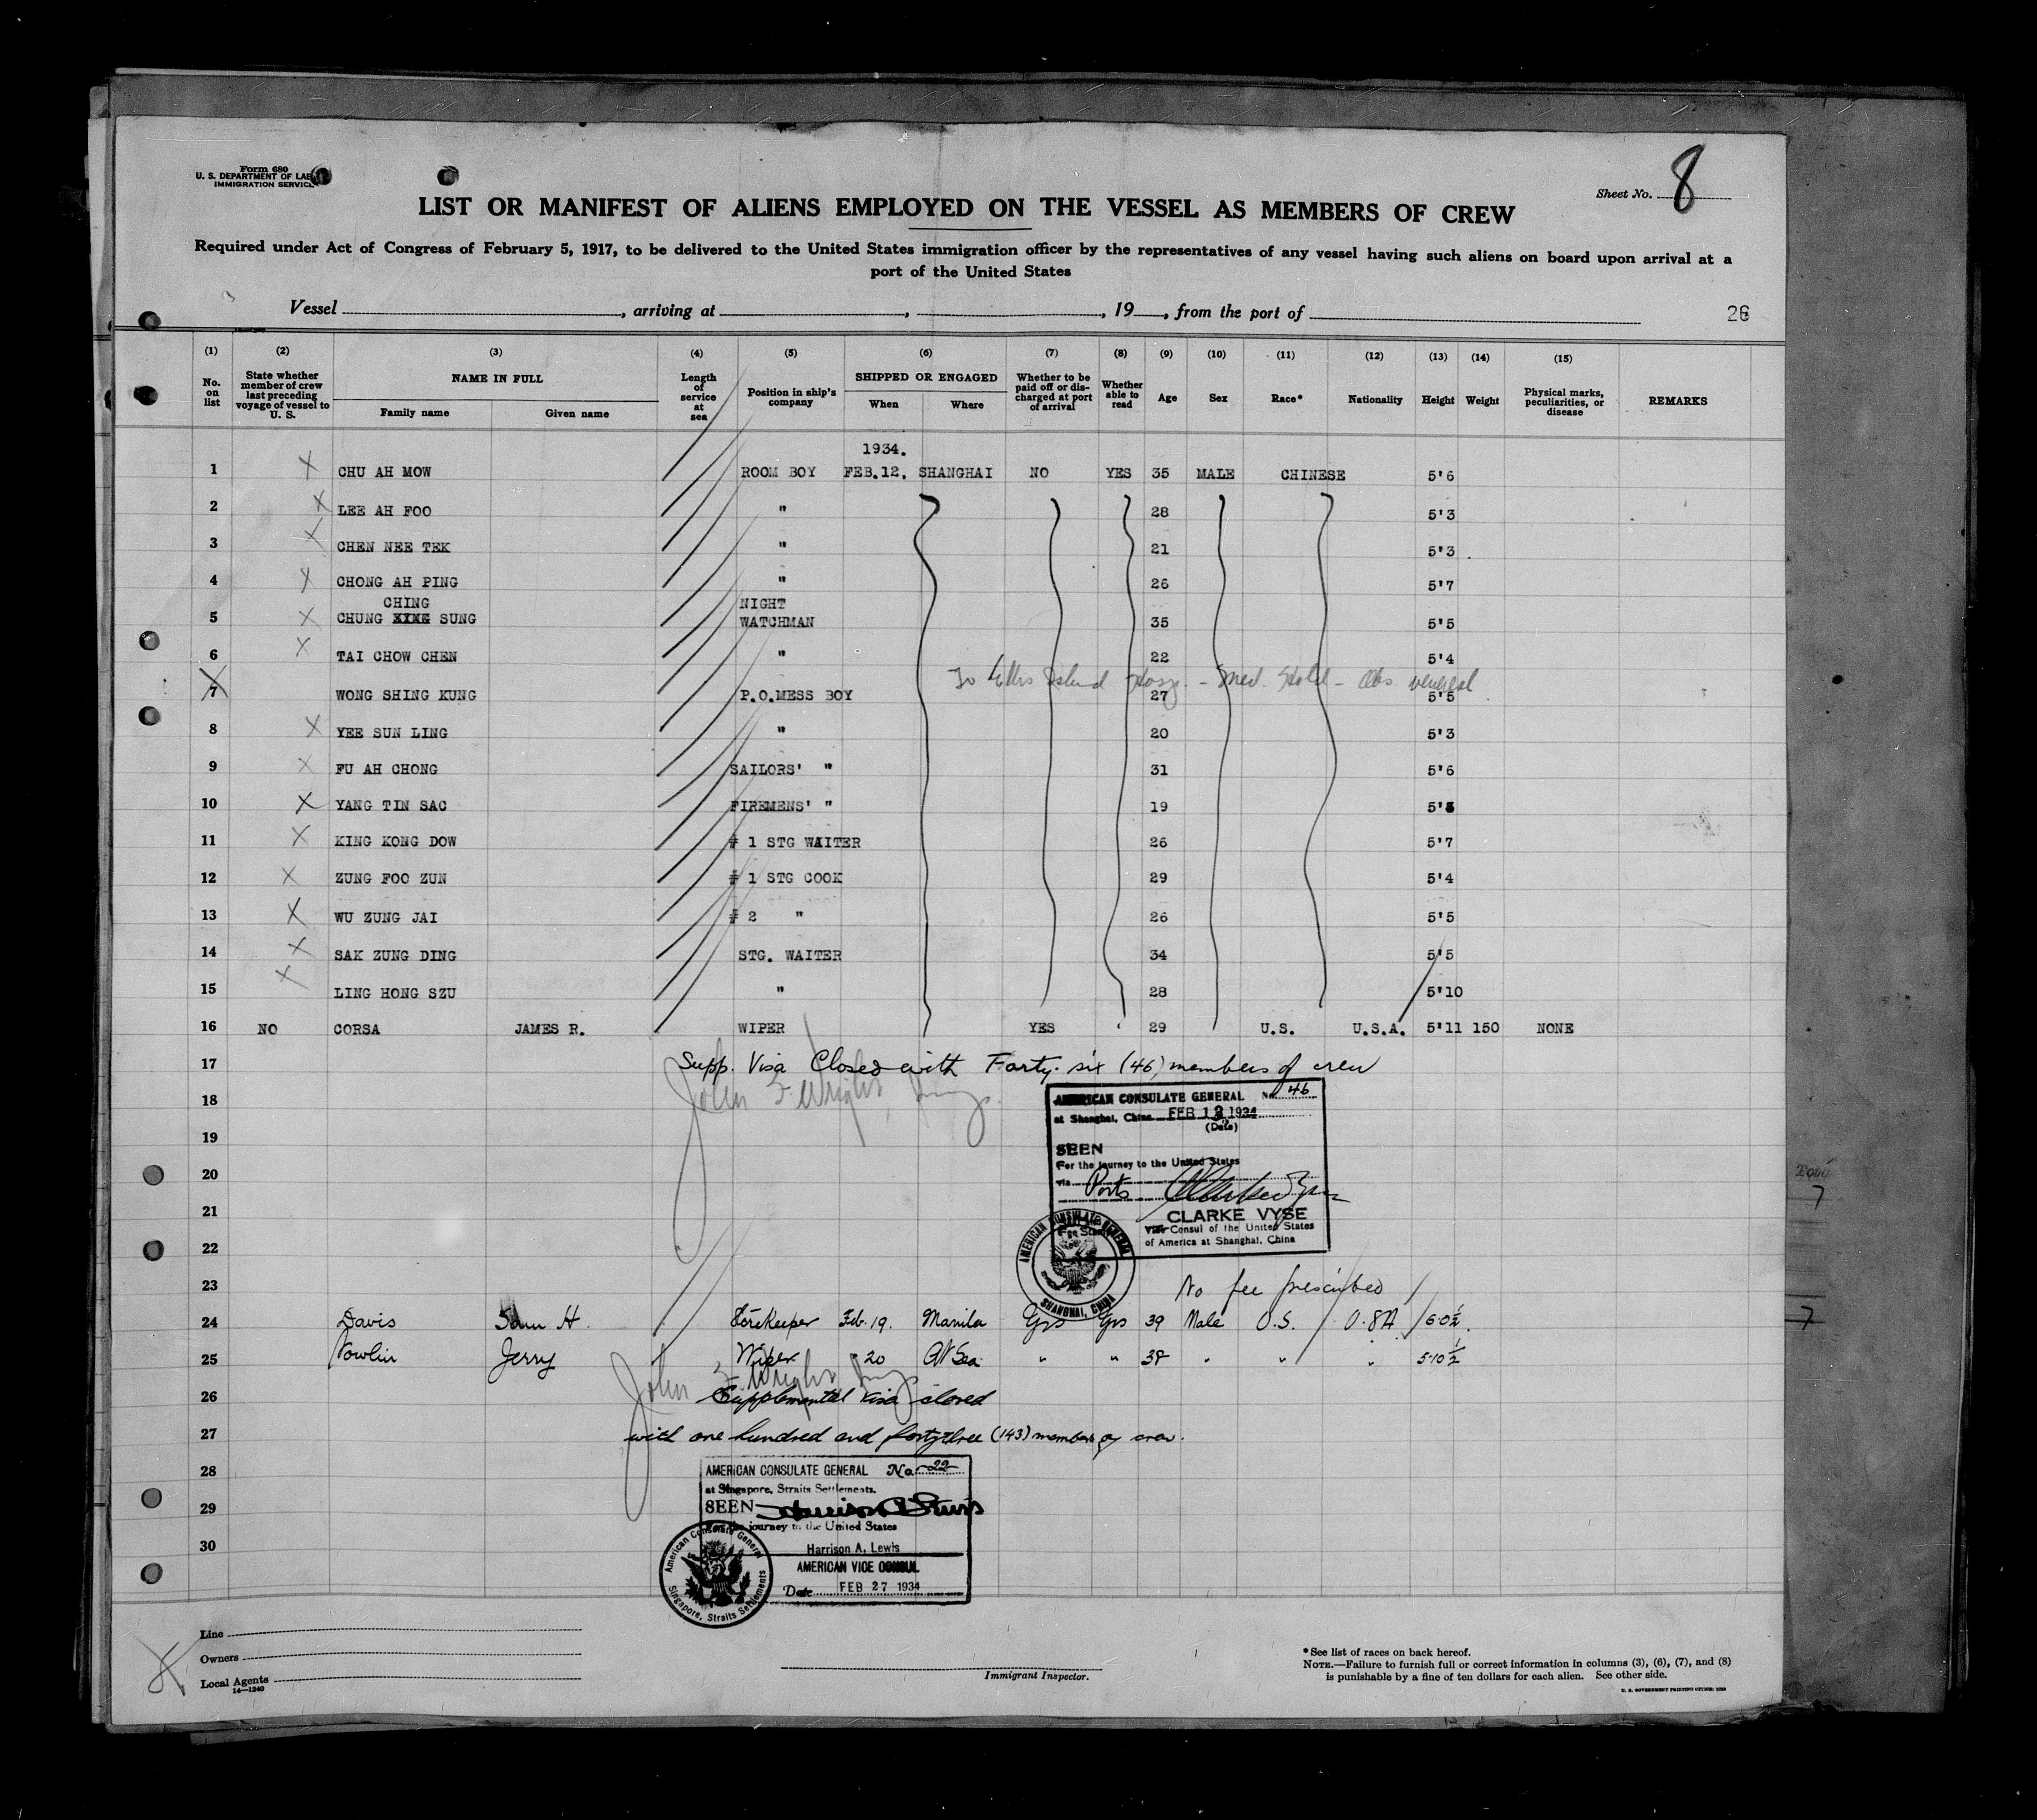 Form 680
U. S. DEPARTMENT OF LAB
IMMIGRATION SERVICE
Sheet No. 8
LIST OR MANIFEST OF ALIENS EMPLOYED ON THE VESSEL AS MEMBERS OF CREW
Required under Act of Congress of February 5, 1917, to be delivered to the United States immigration officer by the representatives of any vessel having such aliens on board upon arrival at a
port of the United States
Vessel , arriving at , , 19 , from the port of
26
(1) (2) (3) (4) (5) (6) (7) (8) (9) (10) (11) (12) (13) (14) (15)
No. on list State whether member of crew last preceding voyage of vessel to U. S. NAME IN FULL Family name Given name Length of service at sea Position in ship's company SHIPPED OR ENGAGED When Where Whether to be paid off or discharged at port of arrival Whether able to read Age Sex Race* Nationality Height Weight Physical marks, peculiarities, or disease REMARKS
1934.
1 X CHU AH MOW ROOM BOY FEB.12, SHANGHAI NO YES 35 MALE CHINESE 5'6
2 X LEE AH FOO " 28 5'3
3 X CHEN NEE TEK " 21 5'3
4 X CHONG AH PING " 26 5'7
CHING NIGHT
5 X CHUNG SUNG WATCHMAN 35 5'5
6 X TAI CHOW CHEN " 22 5'4
To Ellis Island Hosp. - Med. Hold - Obs. venereal
7 WONG SHING KUNG P.O.MESS BOY 27 5'5
8 X YEE SUN LING " 20 5'3
9 X FU AH CHONG SAILORS' " 31 5'6
10 X YANG TIN SAC FIREMENS' " 19 5'
11 X KING KONG DOW # 1 STG WAITER 26 5'7
12 X ZUNG FOO ZUN # 1 STG COOK 29 5'4
13 X WU ZUNG JAI # 2 " 26 5'5
14 X SAK ZUNG DING STG. WAITER 34 5'5
15 X LING HONG SZU " 28 5'10
16 NO CORSA JAMES R. WIPER YES 29 U.S. U.S.A. 5'11 150 NONE
17 Supp. Visa Closed with Forty-six (46) members of crew
John F. Wright, Insp.
18
19
20
21
22
AMERICAN CONSULATE GENERAL No. 46
at Shanghai, China FEB 1 1934
(Date)
SEEN
For the journey to the United States
via Ports
CLARKE VYSE
Vice Consul of the United States
of America at Shanghai, China
AMERICAN CONSULATE GENERAL
SHANGHAI, CHINA
23 No fee prescribed
24 Davis Sam H. Storekeeper Feb. 19. Manila Yes Yes 39 Male U.S. U.S.A 6-0½
25 Nowlin Jerry Wiper " 20 At Sea " " 38 " " " 5-10½
John F. Wright Insp
26 Supplemental visa closed
27 with one hundred and forty three (143) members of crew.
28
29
30
AMERICAN CONSULATE GENERAL No 22
at Singapore, Straits Settlements.
SEEN Harrison A Lewis
journey to the United States
Harrison A. Lewis
AMERICAN VICE CONSUL
Date FEB 27 1934
American Consulate General
Singapore, Straits Settlements
Line
Owners
Local Agents
14—1240
Immigrant Inspector.
*See list of races on back hereof.
NOTE.—Failure to furnish full or correct information in columns (3), (6), (7), and (8)
is punishable by a fine of ten dollars for each alien. See other side.
U. S. GOVERNMENT PRINTING OFFICE:
7
7